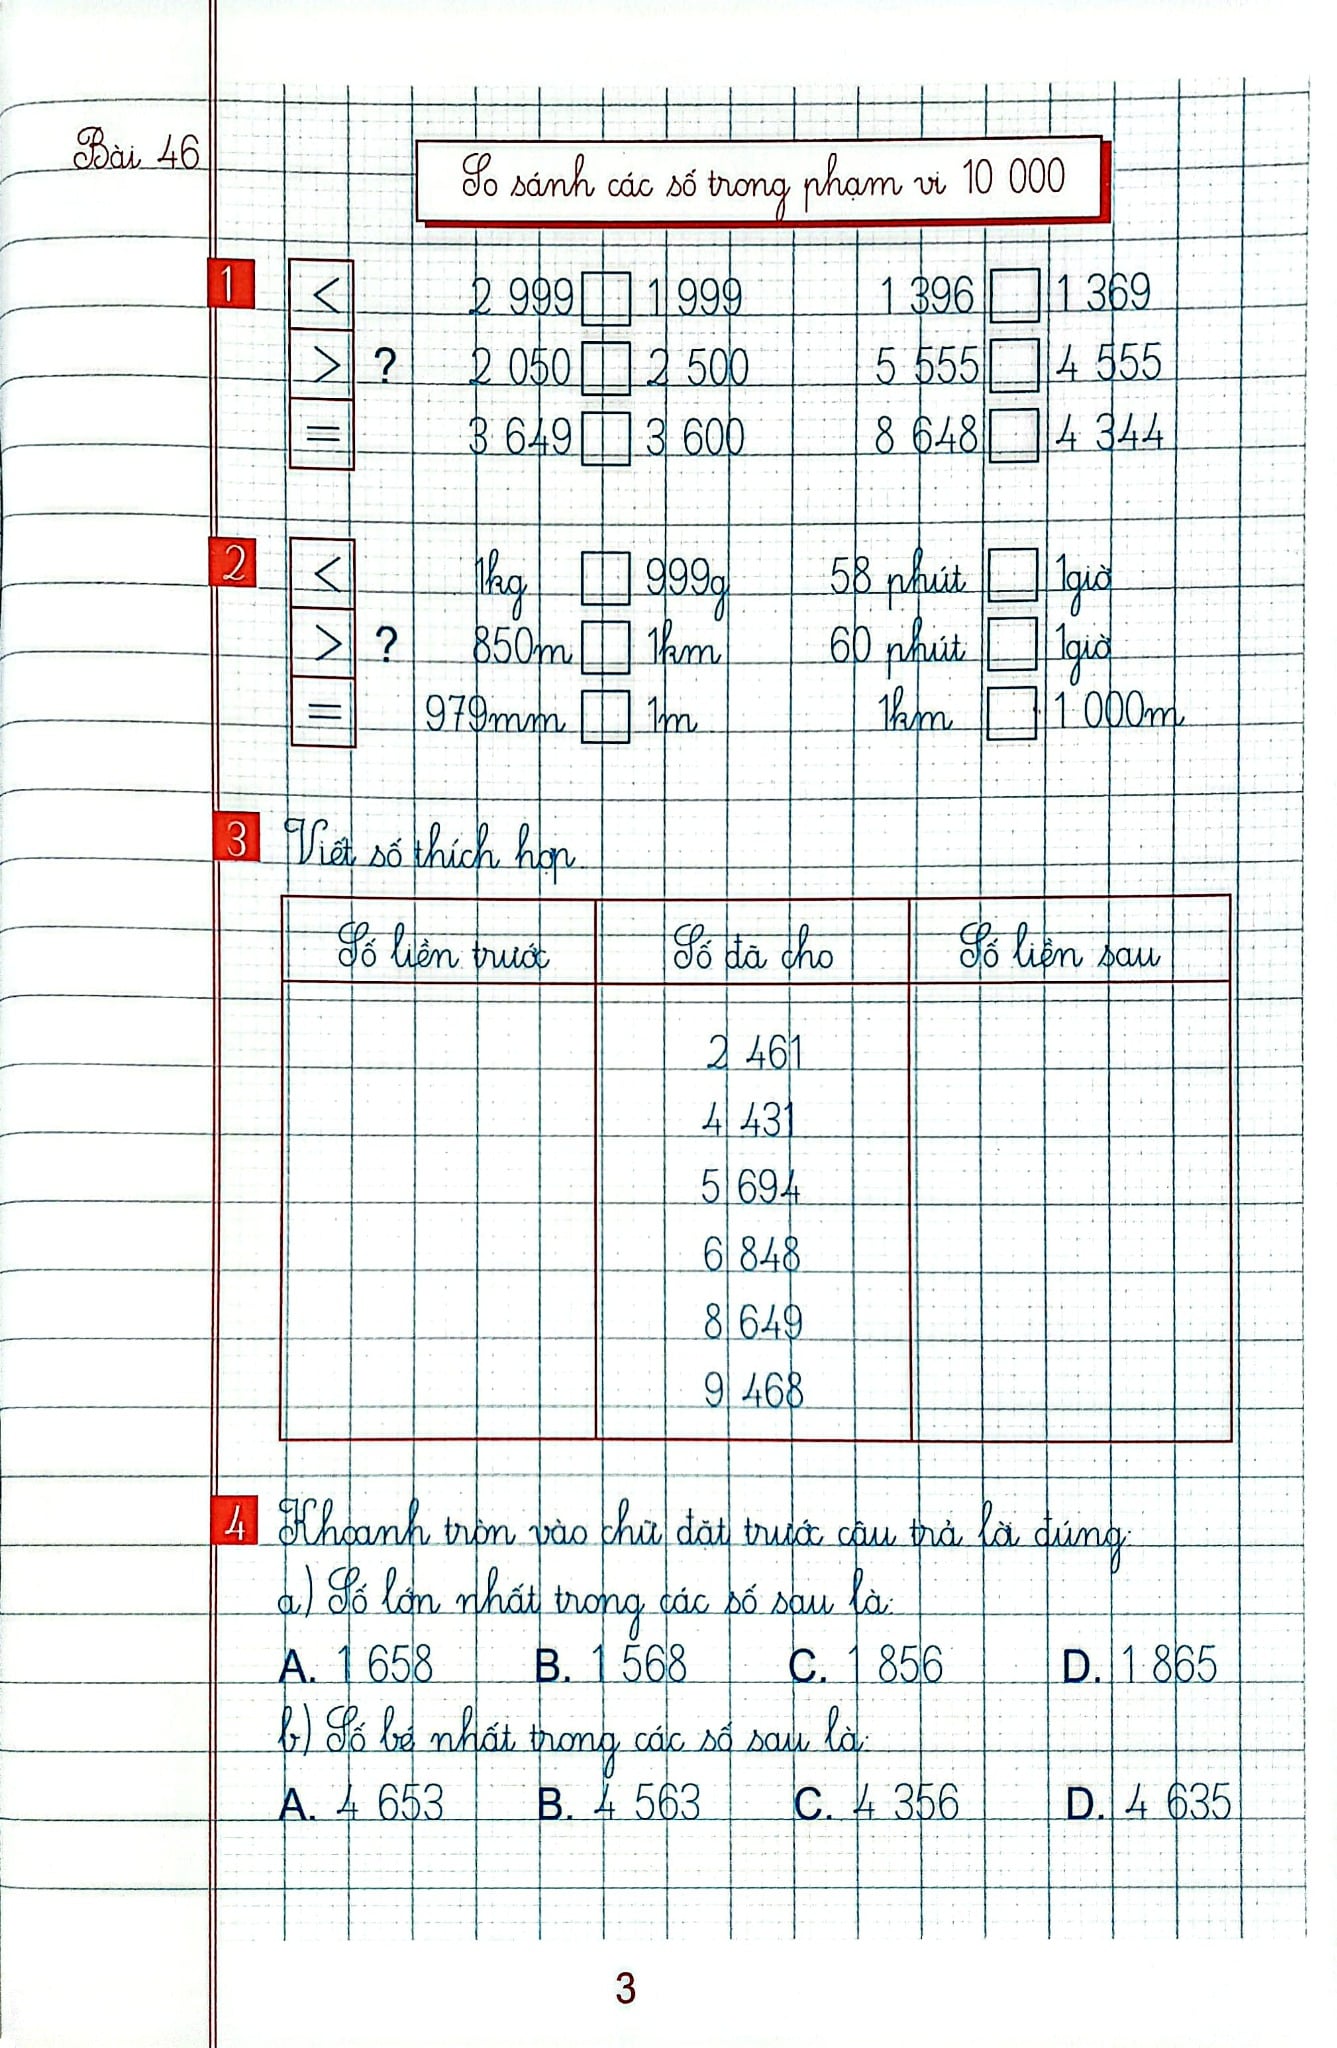 Bài 46
So sánh các số trong phạm vi 10 000
1
< 2 999 □ 1 999 1 396 □ 1 369
> ? 2 050 □ 2 500 5 555 □ 4 555
= 3 649 □ 3 600 8 648 □ 4 344
2
< 1kg □ 999g 58 phút □ 1giờ
> ? 850m □ 1km 60 phút □ 1giờ
= 979mm □ 1m 1km □ 1 000m
3 Viết số thích hợp.
Số liền trước Số đã cho Số liền sau
2 461
4 431
5 694
6 848
8 649
9 468
4 Khoanh tròn vào chữ đặt trước câu trả lời đúng:
a) Số lớn nhất trong các số sau là:
A. 1 658 B. 1 568 C. 1 856 D. 1 865
b) Số bé nhất trong các số sau là:
A. 4 653 B. 4 563 C. 4 356 D. 4 635
3